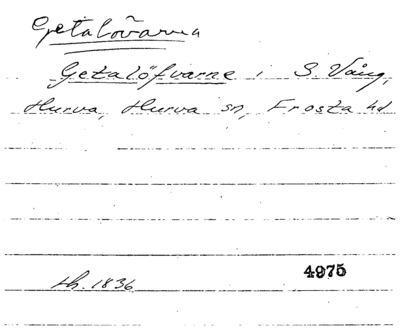 Getalövarna
Getalöfvarne i S. Vång,
Hurva, Hurva sn, Frosta hd
4975
lh. 1836